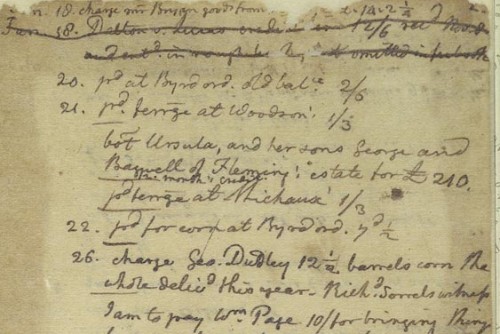 18. charge mr Bryan goods from 1.12-2 ½
Jan. 18. Dalton v. Lucas credit 12/6 rec'd
and ent'd. in rough by omitted in
20. pd at Byrd ord. old bal.ce 2/6
21. pd. ferrge at Woodson's 1/3
bot Ursula, and her sons George and
Bagwell of Fleming's estate for £210.
this month's cred.
pd ferrge at Michaux' 1/3
22. pd for corn at Byrd ord. 7d ½
26. charge Geo. Dudley 12 ½ barrels corn the
whole deliv'd this year. Rich'd. Sorrels witness
I am to pay Wm. Page 10/ for bringing